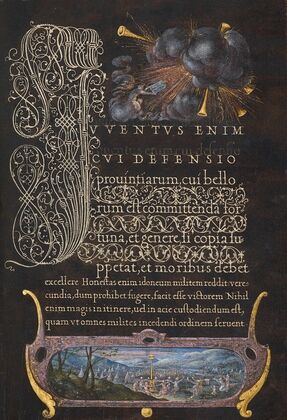 IVVENTVS ENIM
CVI DEFENSIO
prouintiarum, cui bello
rum est committenda for
tuna, et genere si copia su
ppetat, et moribus debet
excellere Honestas enim idoneum militem reddit vere
cundia, dum prohibet fugere, facit esse victorem Nihil
enim magis in itinere, uel in acie custodiendum est,
quam vt omnes milites incedendi ordinem seruent